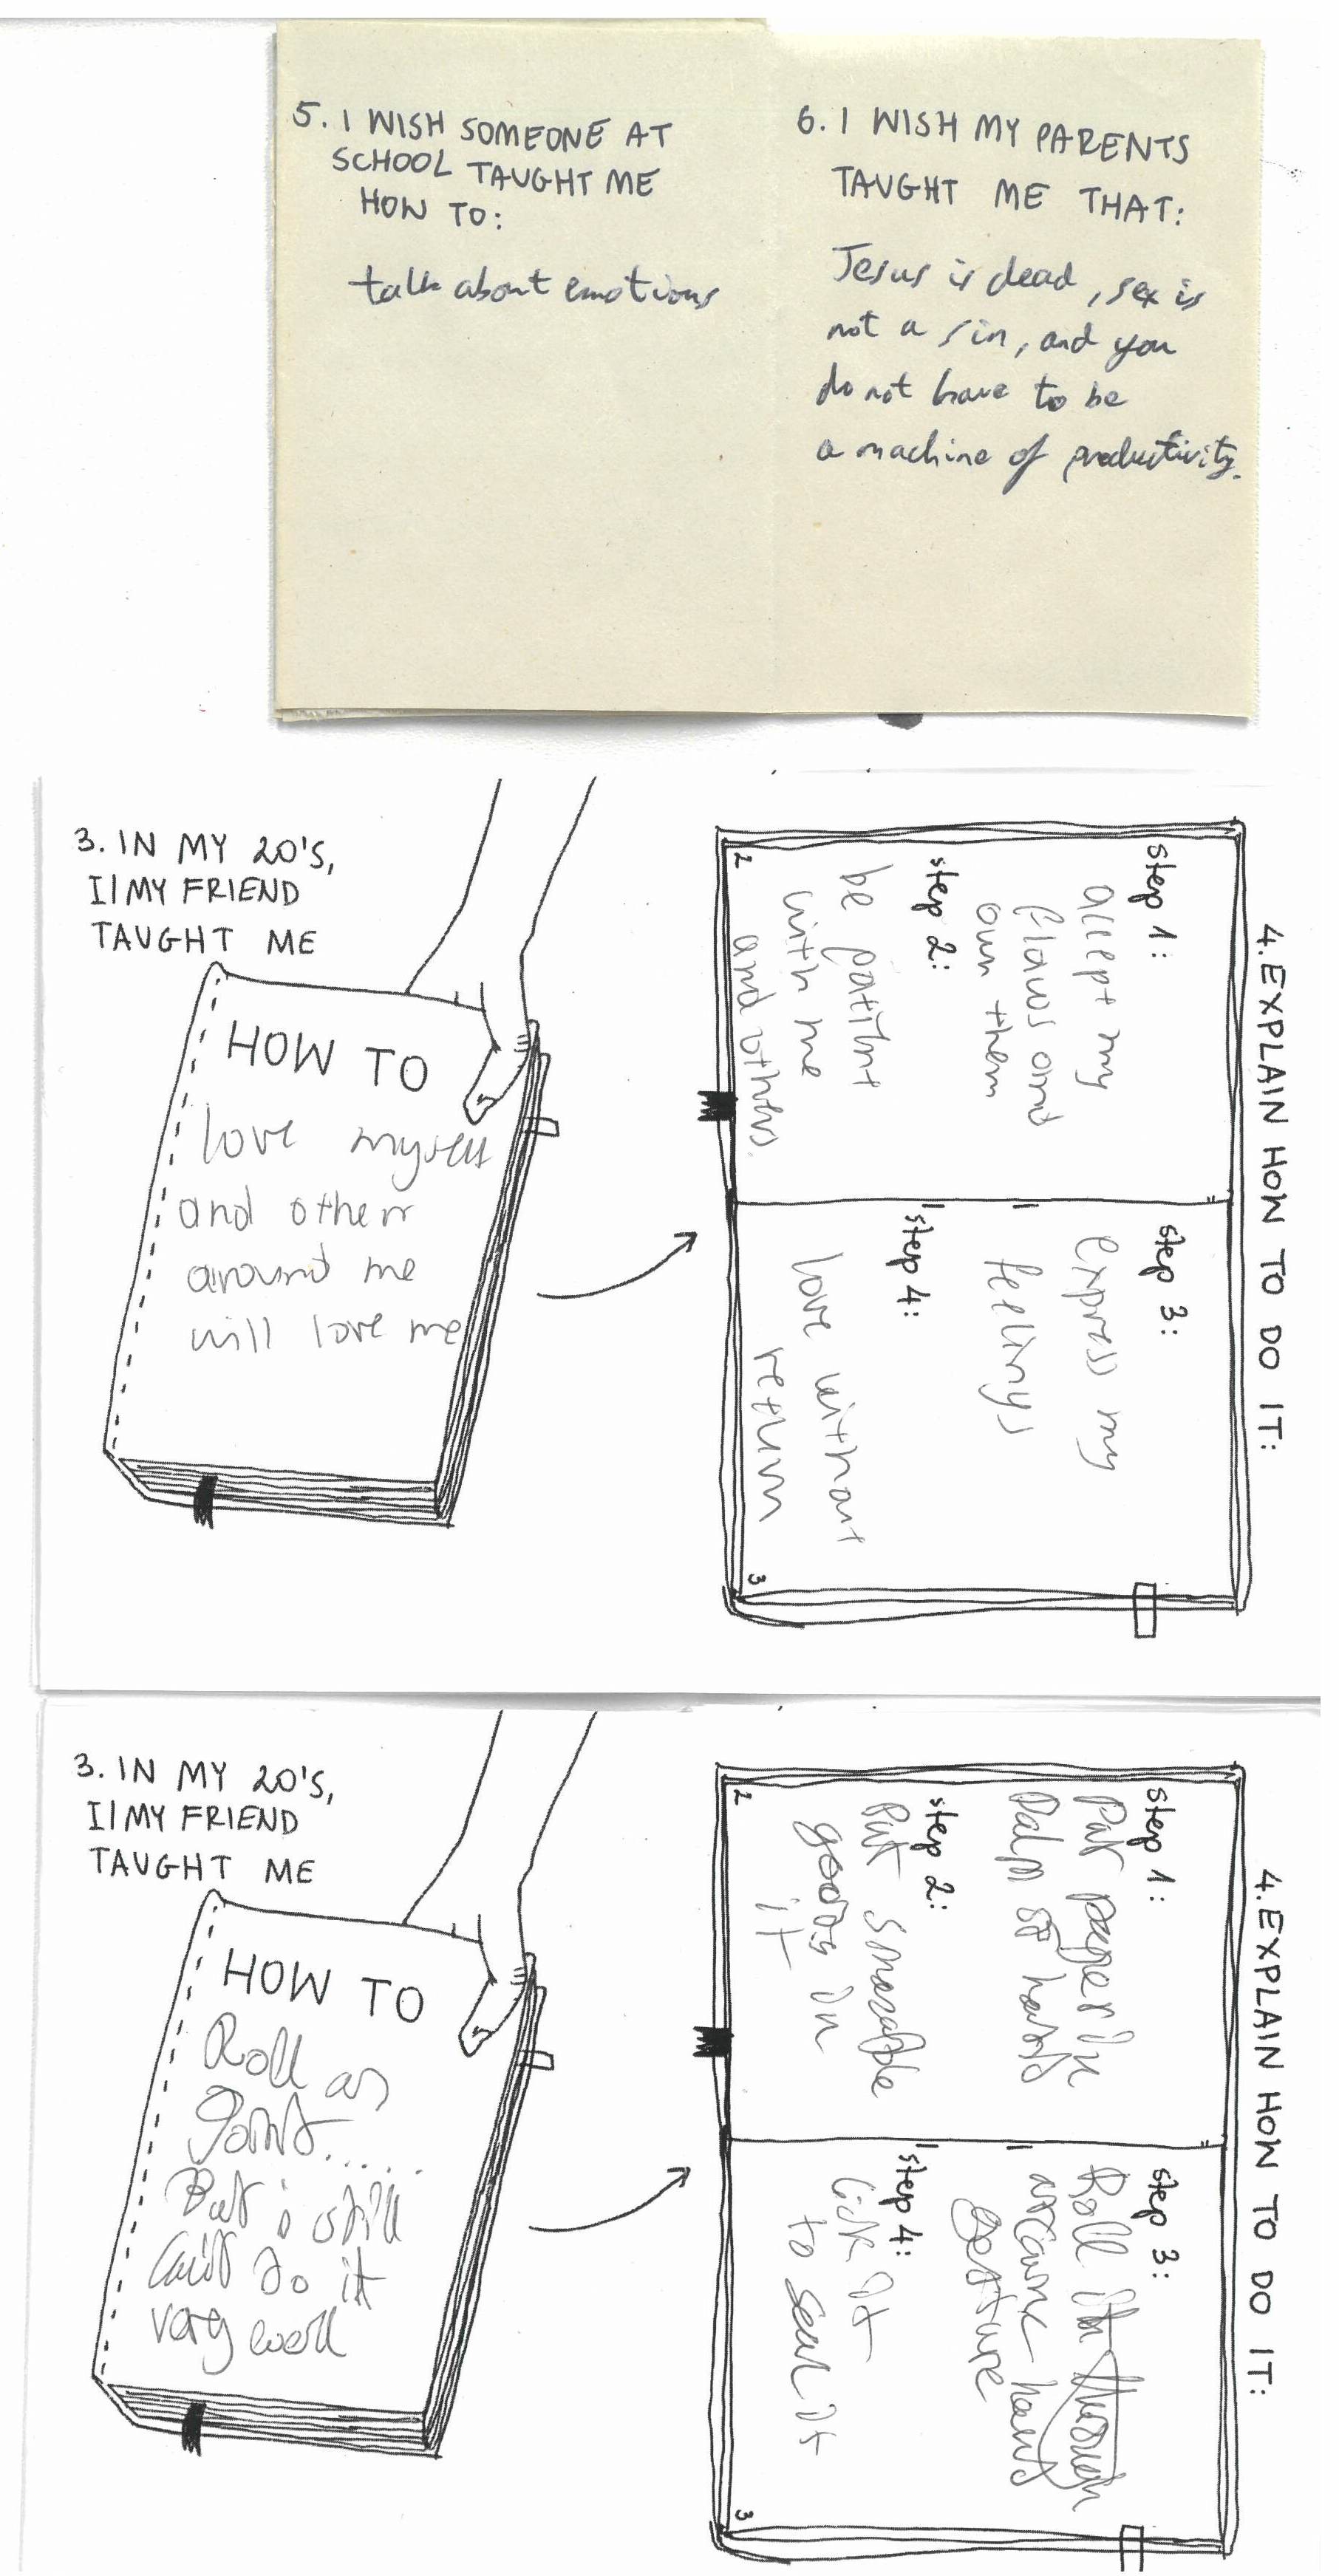 5. I WISH SOMEONE AT
SCHOOL TAUGHT ME
HOW TO:
talk about emotions
6. I WISH MY PARENTS
TAUGHT ME THAT:
Jesus is dead, sex is
not a sin, and you
do not have to be
a machine of productivity.
3. IN MY 20'S,
I/MY FRIEND
TAUGHT ME
HOW TO
love myself
and others
around me
will love me
4. EXPLAIN HOW TO DO IT:
step 1:
accept my
flaws and
own them
step 2:
be patient
with me
and others.
2
step 3:
express my
feelings
step 4:
love without
return
3
3. IN MY 20'S,
I/MY FRIEND
TAUGHT ME
HOW TO
Roll a
Joint......
But i still
can't do it
very well
4. EXPLAIN HOW TO DO IT:
step 1:
Put paper in
Palm of hand
step 2:
Put smokable
goods in
it
2
step 3:
Roll it through
arcane hand
gesture
step 4:
Lick it
to seal it
3